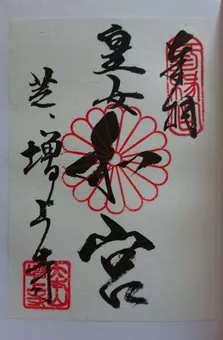 奉拝
皇女和宮
芝、増上寺